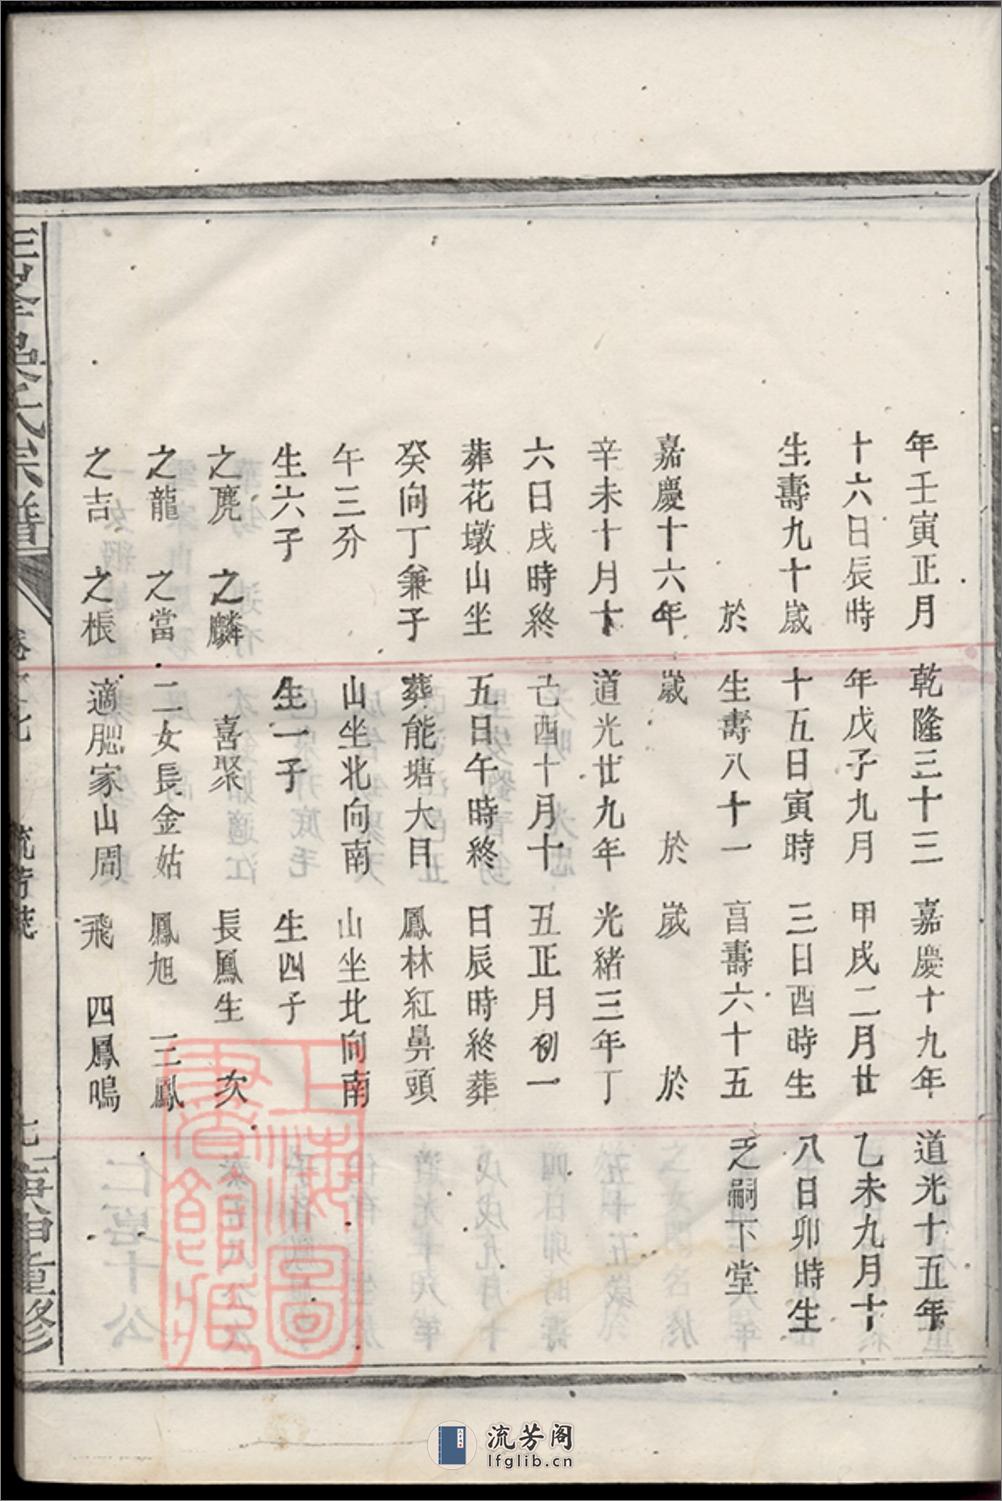 年壬寅正月
十六日辰時
生壽九十歲
於
嘉慶十六年
辛未十月十
六日戌時終
葬花墩山坐
癸向丁兼子
午三分
生六子
之麂 之麟
之龍 之當
之吉 之棖
乾隆三十三
年戊子九月
十五日寅時
生壽八十一
歲 於
道光廿九年
己酉十月十
五日午時終
葬能塘大目
山坐北向南
生一子
喜聚
二女長金姑
適肥家山周
嘉慶十九年
甲戌二月廿
三日酉時生
壽六十五
歲 於
光緒三年丁
丑正月初一
日辰時終葬
鳳林紅鼻頭
山坐北向南
生四子
長鳳生 次
鳳旭 三鳳
飛 四鳳鳴
道光十五年
乙未九月十
八日卯時生
乏嗣下堂
氏宗譜
庚申重修
上海圖書館藏
流芳阁
lfglib.cn